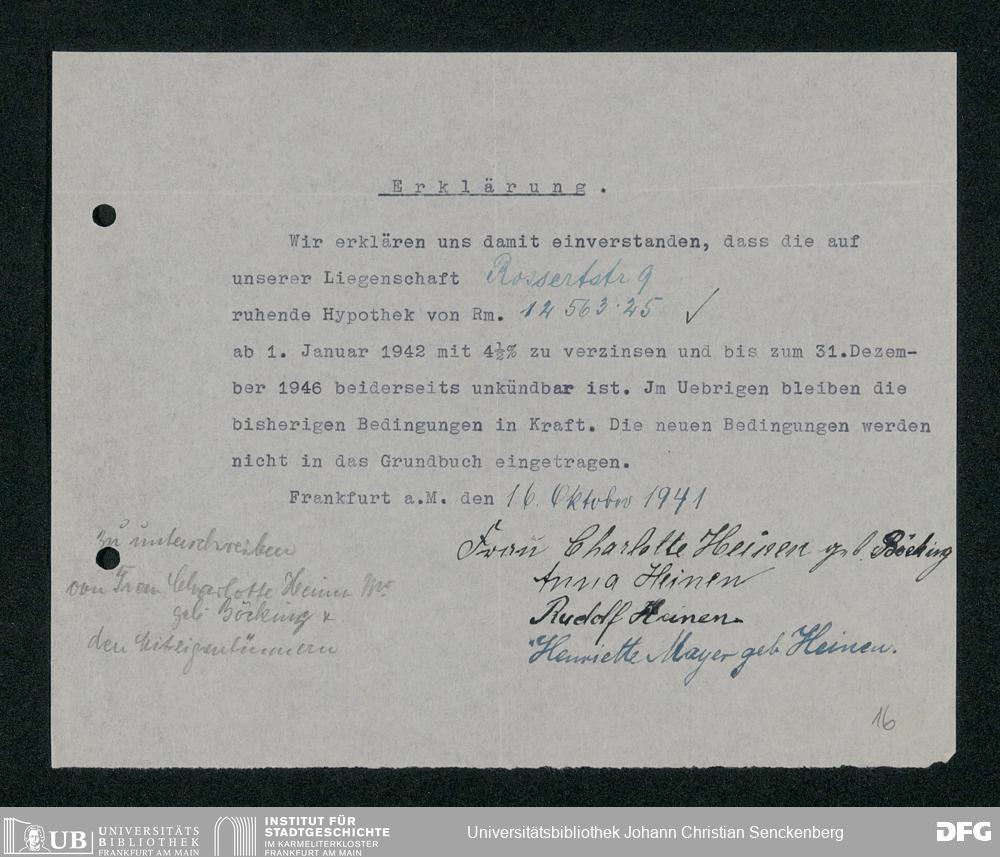 Erklärung.
Wir erklären uns damit einverstanden, dass die auf
unserer Liegenschaft Rossertstr 9
ruhende Hypothek von Rm. 12 563.25 ✓
ab 1. Januar 1942 mit 4½% zu verzinsen und bis zum 31.Dezem-
ber 1946 beiderseits unkündbar ist. Jm Uebrigen bleiben die
bisherigen Bedingungen in Kraft. Die neuen Bedingungen werden
nicht in das Grundbuch eingetragen.
Frankfurt a.M. den 16. Oktober 1941
zu unterschreiben
von Frau Charlotte Heinen
geb Böcking &
den Miteigentümern
Frau Charlotte Heinen geb. Böcking
Anna Heinen
Rudolf Heinen
Henriette Mayer geb Heinen.
16
UB UNIVERSITÄTS
BIBLIOTHEK
FRANKFURT AM MAIN
INSTITUT FÜR
STADTGESCHICHTE
IM KARMELITERKLOSTER
FRANKFURT AM MAIN
Universitätsbibliothek Johann Christian Senckenberg
DFG